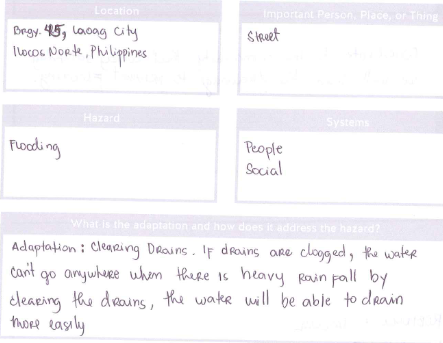 Location
Brgy. 45, Laoag City
Ilocos Norte, Philippines
Important Person, Place, or Thing
Street
Hazard
Flooding
Systems
People
Social
What is the adaptation and how does it address the hazard?
Adaptation: Clearing Drains. If drains are clogged, the water
can't go anywhere when there is heavy rain fall by
clearing the drains, the water will be able to drain
more easily